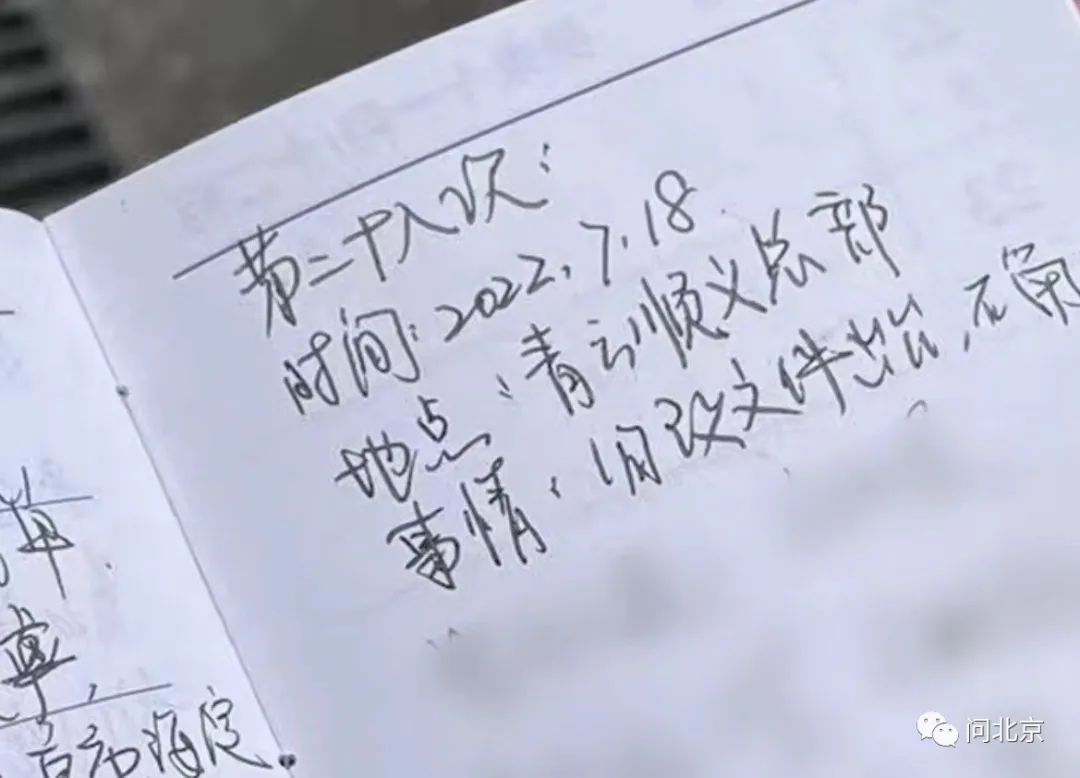 第二十八次:
时间:2022.7.18
地点:青云顺义总部
事情:旧改文件出台,不
海淀
问北京